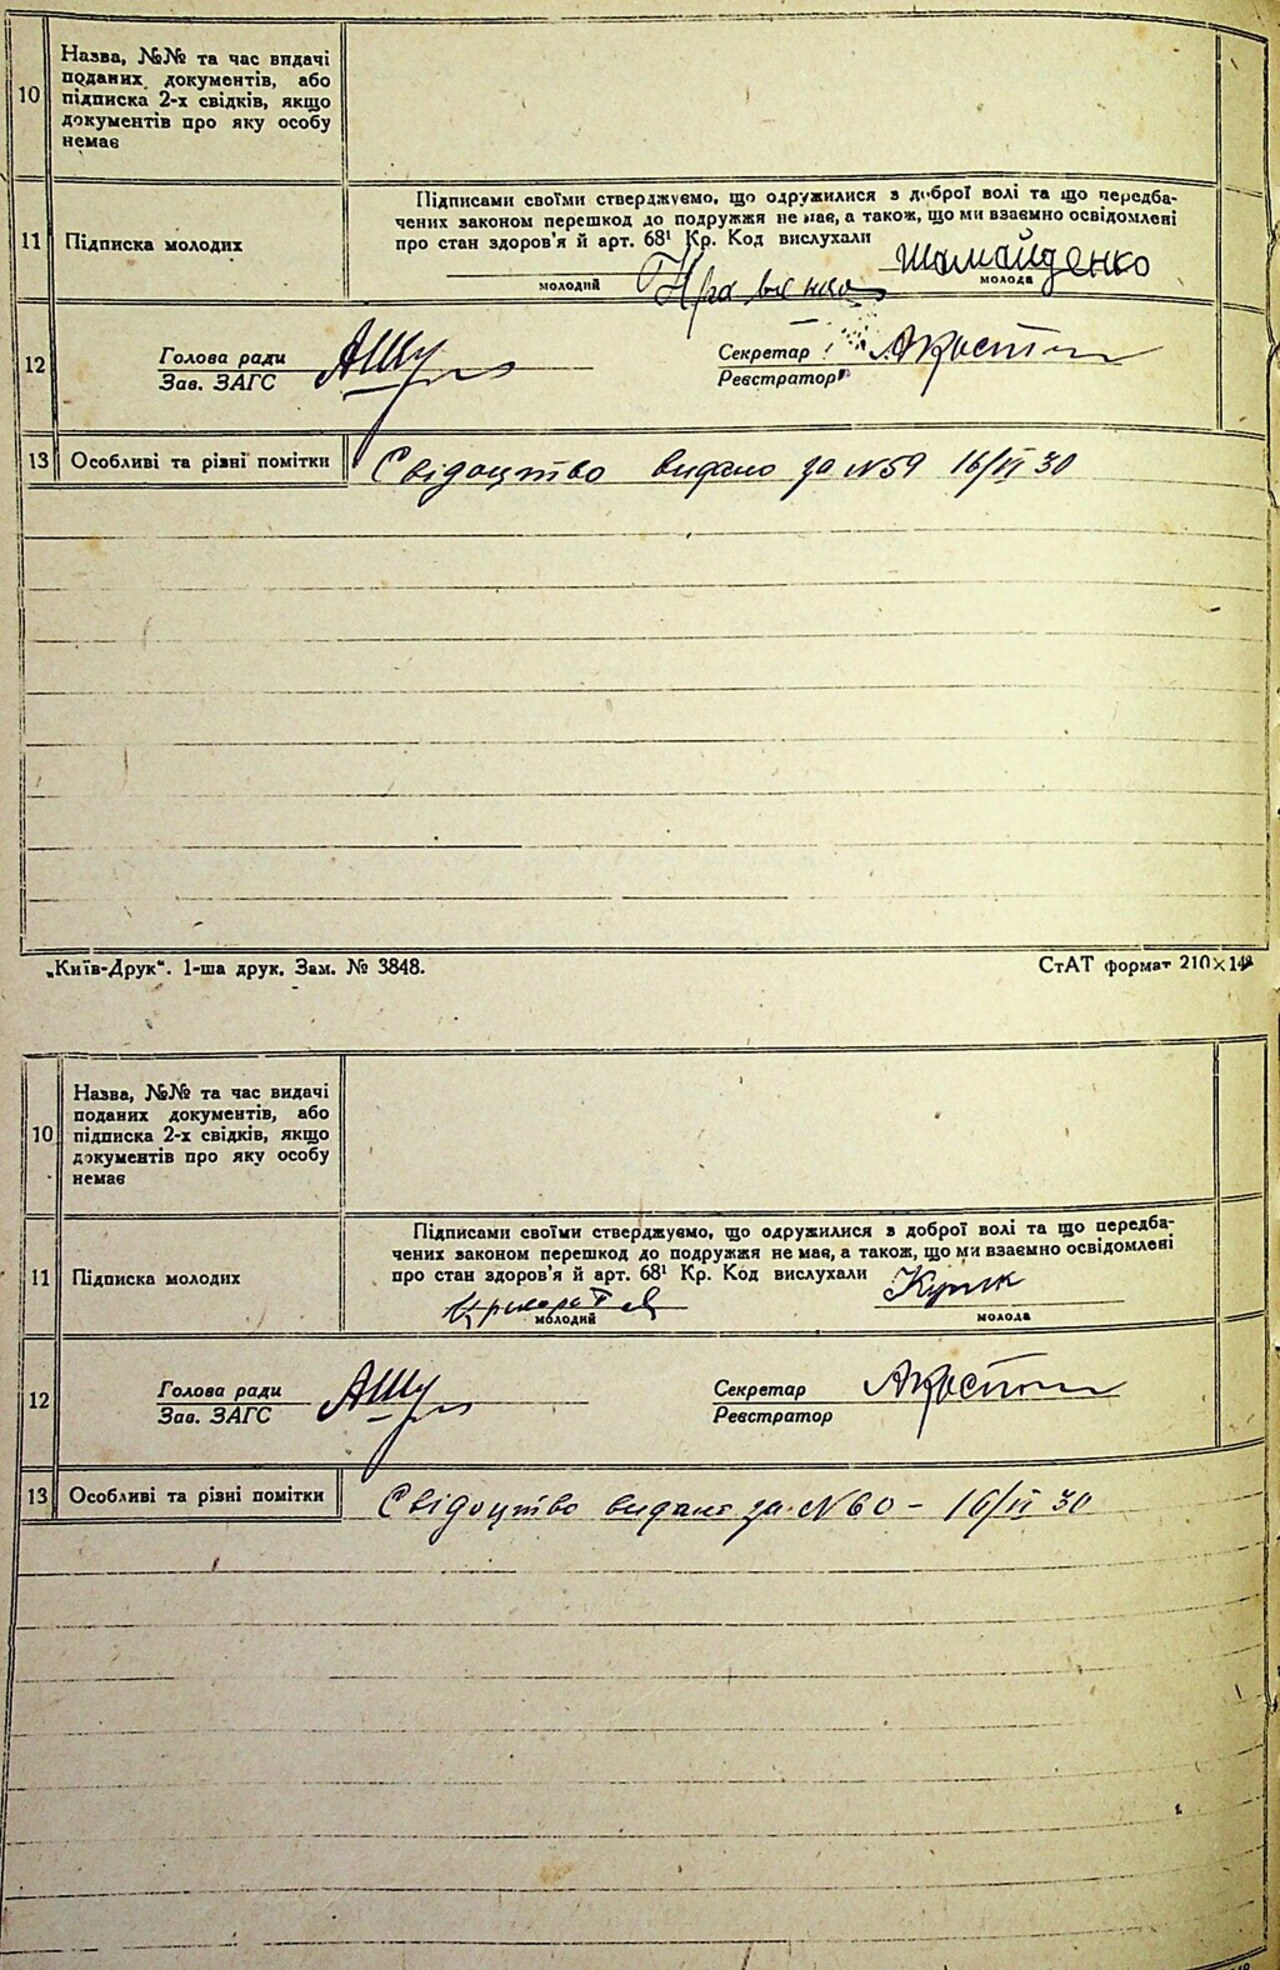 10
Назва, №№ та час видачі
поданих документів, або
підписка 2-х свідків, якщо
документів про яку особу
немає
11
Підписка молодих
Підписами своїми стверджуємо, що одружилися з доброї волі та що передба-
чених законом перешкод до подружжя не має, а також, що ми взаємно освідомлені
про стан здоров'я й арт. 68¹ Кр. Код вислухали
Шамайденко
молодий
молода
12
Голова ради
Зав. ЗАГС
Секретар
Реєстратор
13
Особливі та різні помітки
Свідоцтво видано за N59 16/VI 30
„Київ-Друк“. 1-ша друк. Зам. № 3848.
СтАТ формат 210×148
10
Назва, №№ та час видачі
поданих документів, або
підписка 2-х свідків, якщо
документів про яку особу
немає
11
Підписка молодих
Підписами своїми стверджуємо, що одружилися з доброї волі та що передба-
чених законом перешкод до подружжя не має, а також, що ми взаємно освідомлені
про стан здоров'я й арт. 68¹ Кр. Код вислухали
молодий
молода
12
Голова ради
Зав. ЗАГС
Секретар
Реєстратор
13
Особливі та різні помітки
Свідоцтво видано за N60 – 16/VI 30